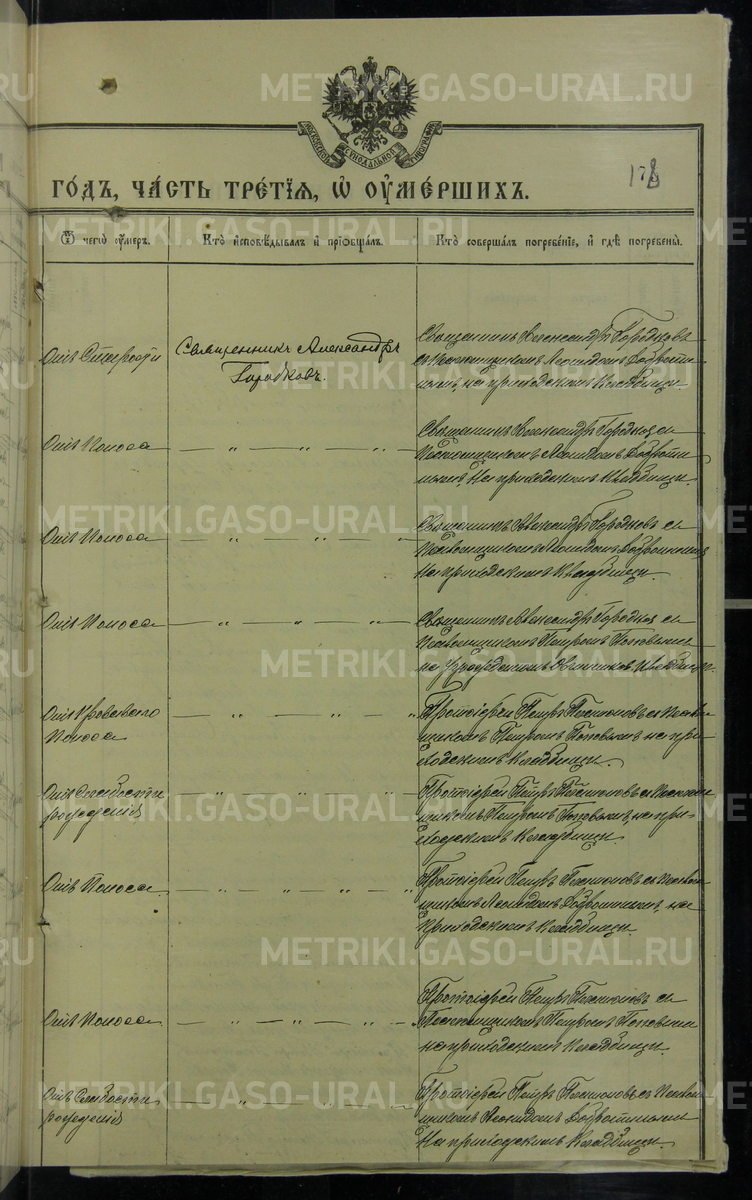 METRIKI.GASO-URAL.RU
МОСКОВСКОЙ СУНОДАЛЬНОЙ ТИПОГРАФІИ
178
го́дъ, ча́сть тре́тїѧ, ѡ҆ ᲂу҆ме́ршихъ.
Ѿ чегѡ̀ ᲂу҆́меръ.
Кто̀ и҆сповѣ́дывалъ и҆ прїѡбща́лъ.
Кто̀ соверша́лъ погребе́нїе, и҆ гдѣ̀ погребены̀.
Отъ Старости
Священникъ Александръ
Городковъ.
Священникъ Александръ Городковъ
съ Псаломщикомъ Леонидомъ
на приходскомъ Кладбищѣ.
Отъ Поноса
— „ — „ — „ —
Священникъ Александръ Городковъ съ
Псаломщикомъ Леонидомъ
на приходскомъ Кладбищѣ.
METRIKI.GASO-URAL.RU
Отъ Поноса
— „ — „ — „ —
Священникъ Александръ Городковъ съ
Псаломщикомъ Леонидомъ
на приходскомъ Кладбищѣ.
Отъ Поноса
— „ — „ — „ —
Священникъ Александръ Городковъ съ
Псаломщикомъ Петромъ Поповымъ
на
METRIKI.GASO-URAL.RU
Отъ Кроваваго
Поноса
— „ — „ — „
Протоіерей Петръ съ Псалом-
щикомъ Петромъ Поповымъ на при-
ходскомъ Кладбищѣ.
Отъ Слабости
рожденія
— „ — „ — „
Протоіерей Петръ съ Псалом-
щикомъ Петромъ Поповымъ, на при-
ходскомъ Кладбищѣ.
METRIKI.GASO-URAL.RU
Отъ Поноса
— „ — „ — „ — „
Протоіерей Петръ съ Псалом-
щикомъ Леонидомъ на
Приходскомъ Кладбищѣ.
METRIKI.GASO-URAL.RU
Отъ Поноса
— „ — „ — „ — „
Протоіерей Петръ съ
Псаломщикомъ Петромъ Поповымъ
на приходскомъ Кладбищѣ.
Отъ Слабости
рожденія
— „ — „ — „ — „
Протоіерей Петръ съ Псалом-
щикомъ Леонидомъ
на приходскомъ Кладбищѣ.
METRIKI.GASO-URAL.RU